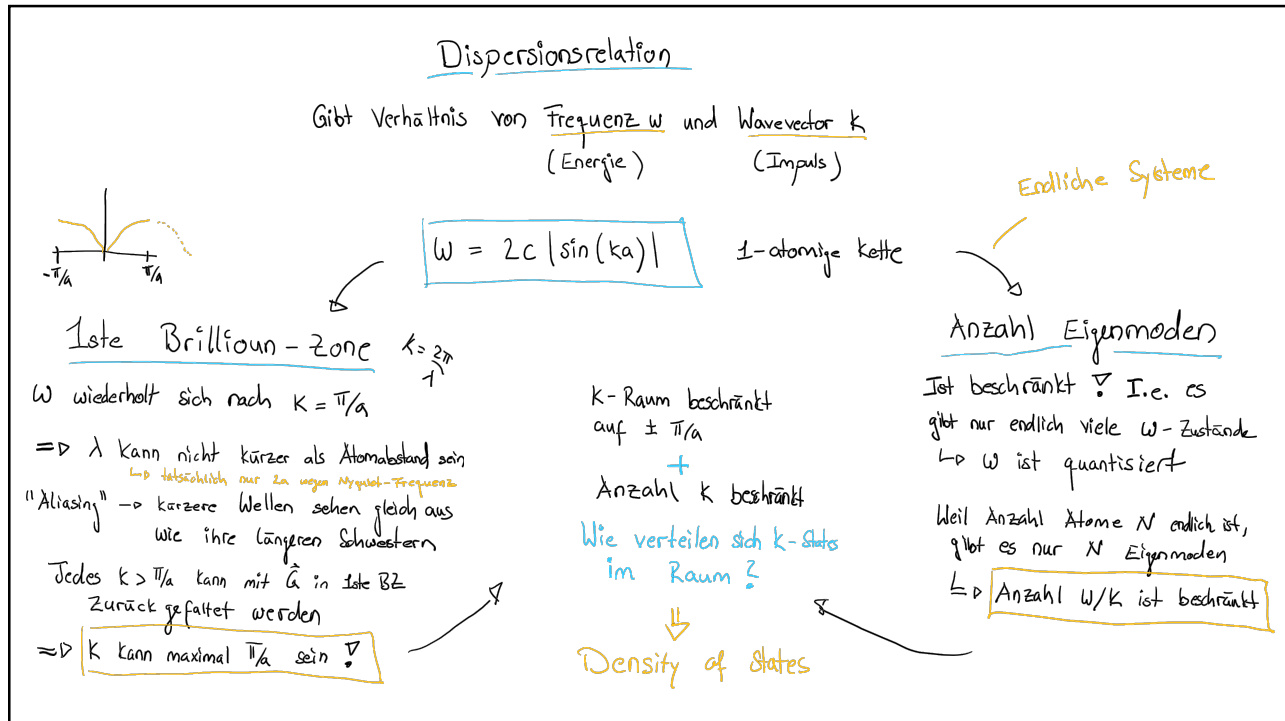 Dispersionsrelation
Gibt Verhältnis von Frequenz ω und Wavevector k
(Energie) (Impuls)
Endliche Systeme
-π/a π/a
ω = 2c |sin(ka)|
1-atomige Kette
1ste Brillioun-Zone
k = 2π/λ
ω wiederholt sich nach k = π/a
=> λ kann nicht kürzer als Atomabstand sein
↳ tatsächlich nur 2a wegen Nyquist-Frequenz
"Aliasing" → kürzere Wellen sehen gleich aus
wie ihre längeren Schwestern
Jedes k > π/a kann mit G in 1ste BZ
zurück gefaltet werden
=> k kann maximal π/a sein !
k-Raum beschränkt
auf ± π/a
+
Anzahl k beschränkt
Wie verteilen sich k-States
im Raum ?
⇓
Density of states
Anzahl Eigenmoden
Ist beschränkt ! I.e. es
gibt nur endlich viele ω-Zustände
↳ ω ist quantisiert
Weil Anzahl Atome N endlich ist,
gibt es nur N Eigenmoden
↳ Anzahl ω/k ist beschränkt